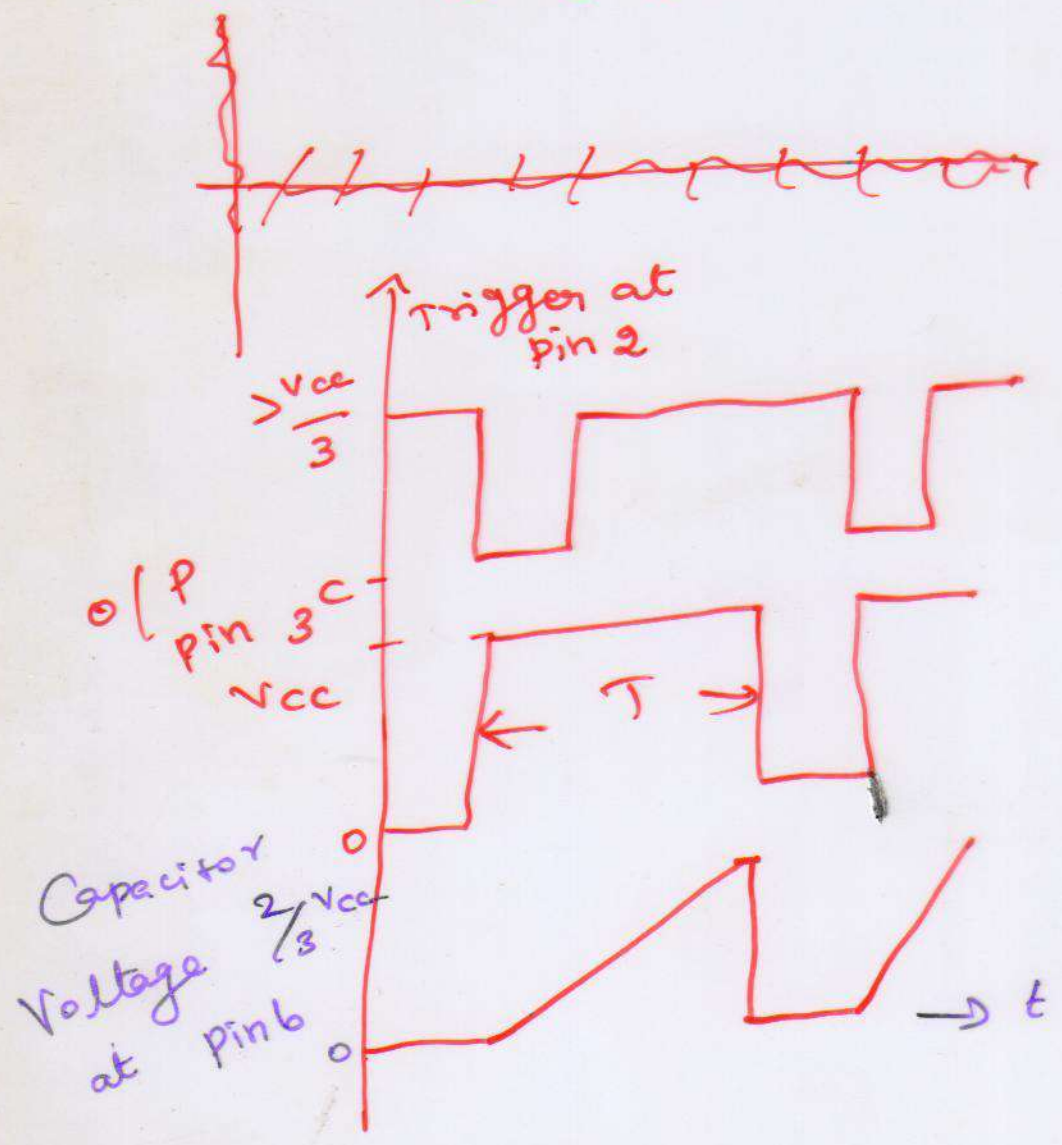 Trigger at
pin 2
> Vcc
3
o/p
pin 3
Vcc
T
0
Capacitor
Voltage
at pin 6
2/3 Vcc
0
t